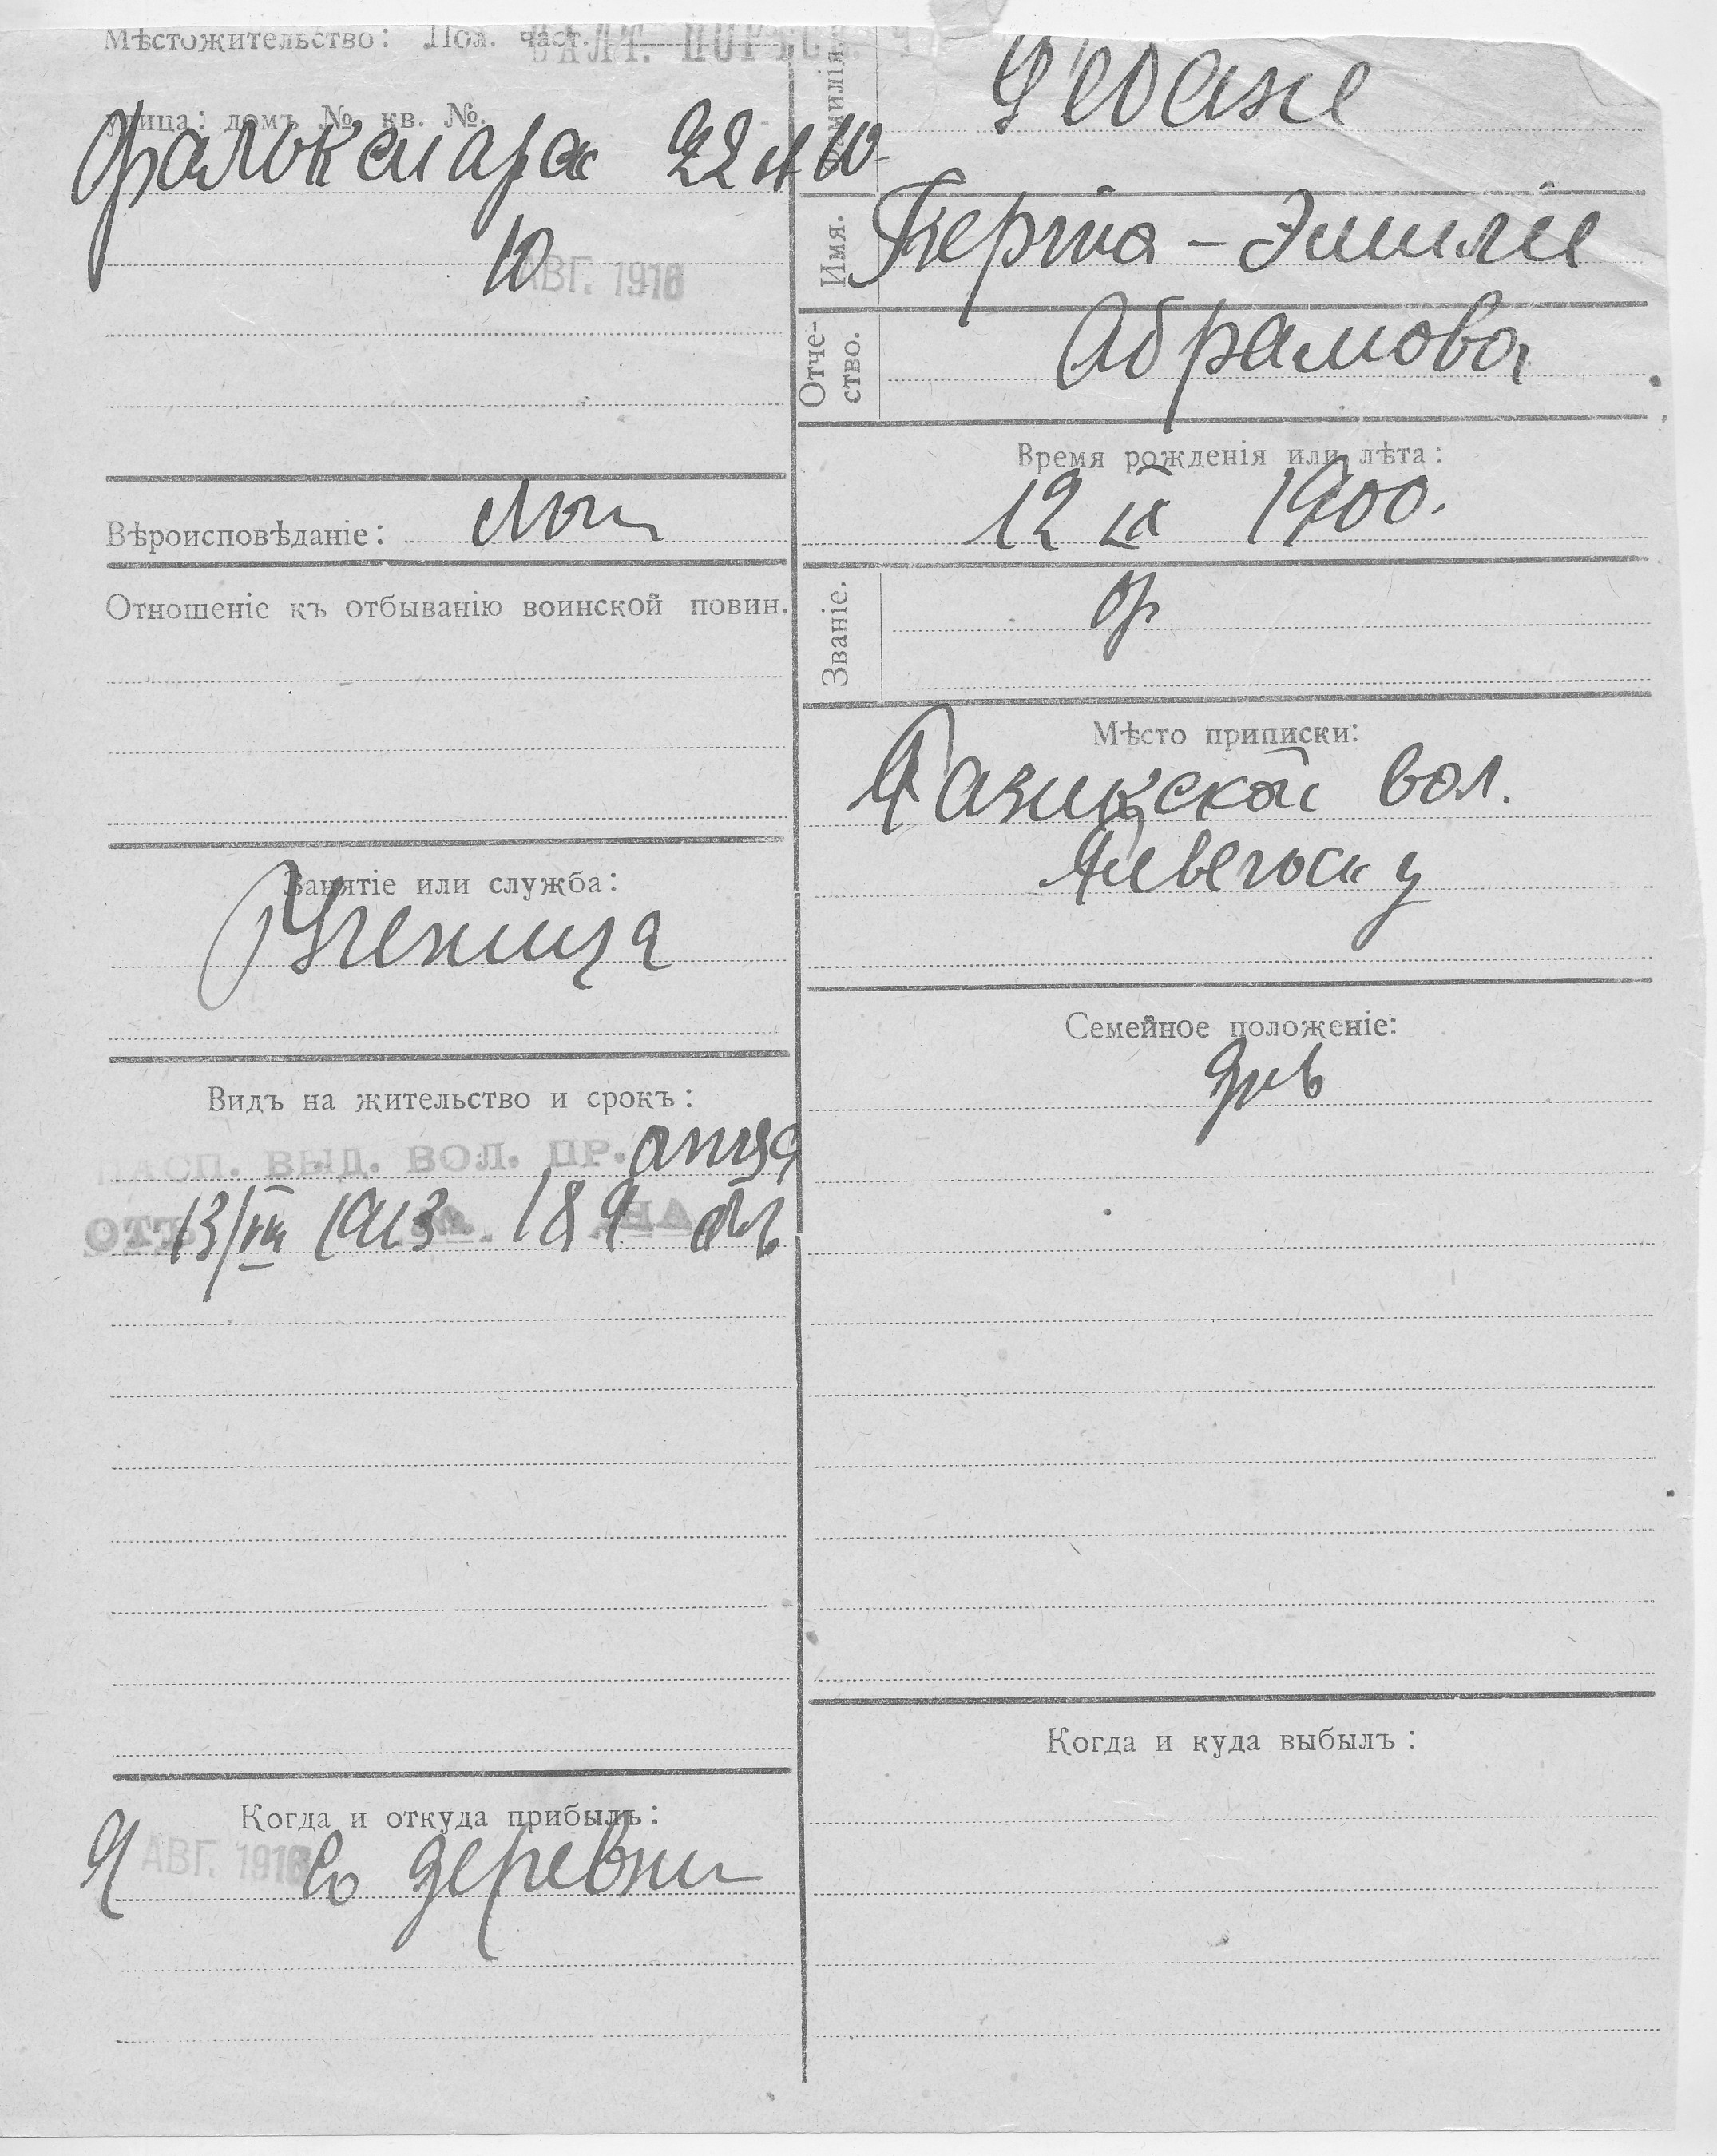 Мѣстожительство: Пол. част.
улица: домъ № кв. №.
22 10
10 АВГ. 1916
Вѣроисповѣданіе: Лют
Отношеніе къ отбыванію воинской повин.
Занятіе или служба:
Ученица
Видъ на жительство и срокъ:
ПАСП. ВЫД. ВОЛ. ПР. отца
ОТЪ 13/VIII 1913 № 189 НА
Когда и откуда прибылъ:
9 АВГ. 1916 Из деревни
Фамилія
Имя. Берта-Эмиліе
Отче-
ство. Абрамова
Время рожденія или лѣта:
12 IX 1900.
Званіе. кр
Мѣсто приписки:
вол.
Ревельск у
Семейное положеніе:
дѣв
Когда и куда выбылъ: